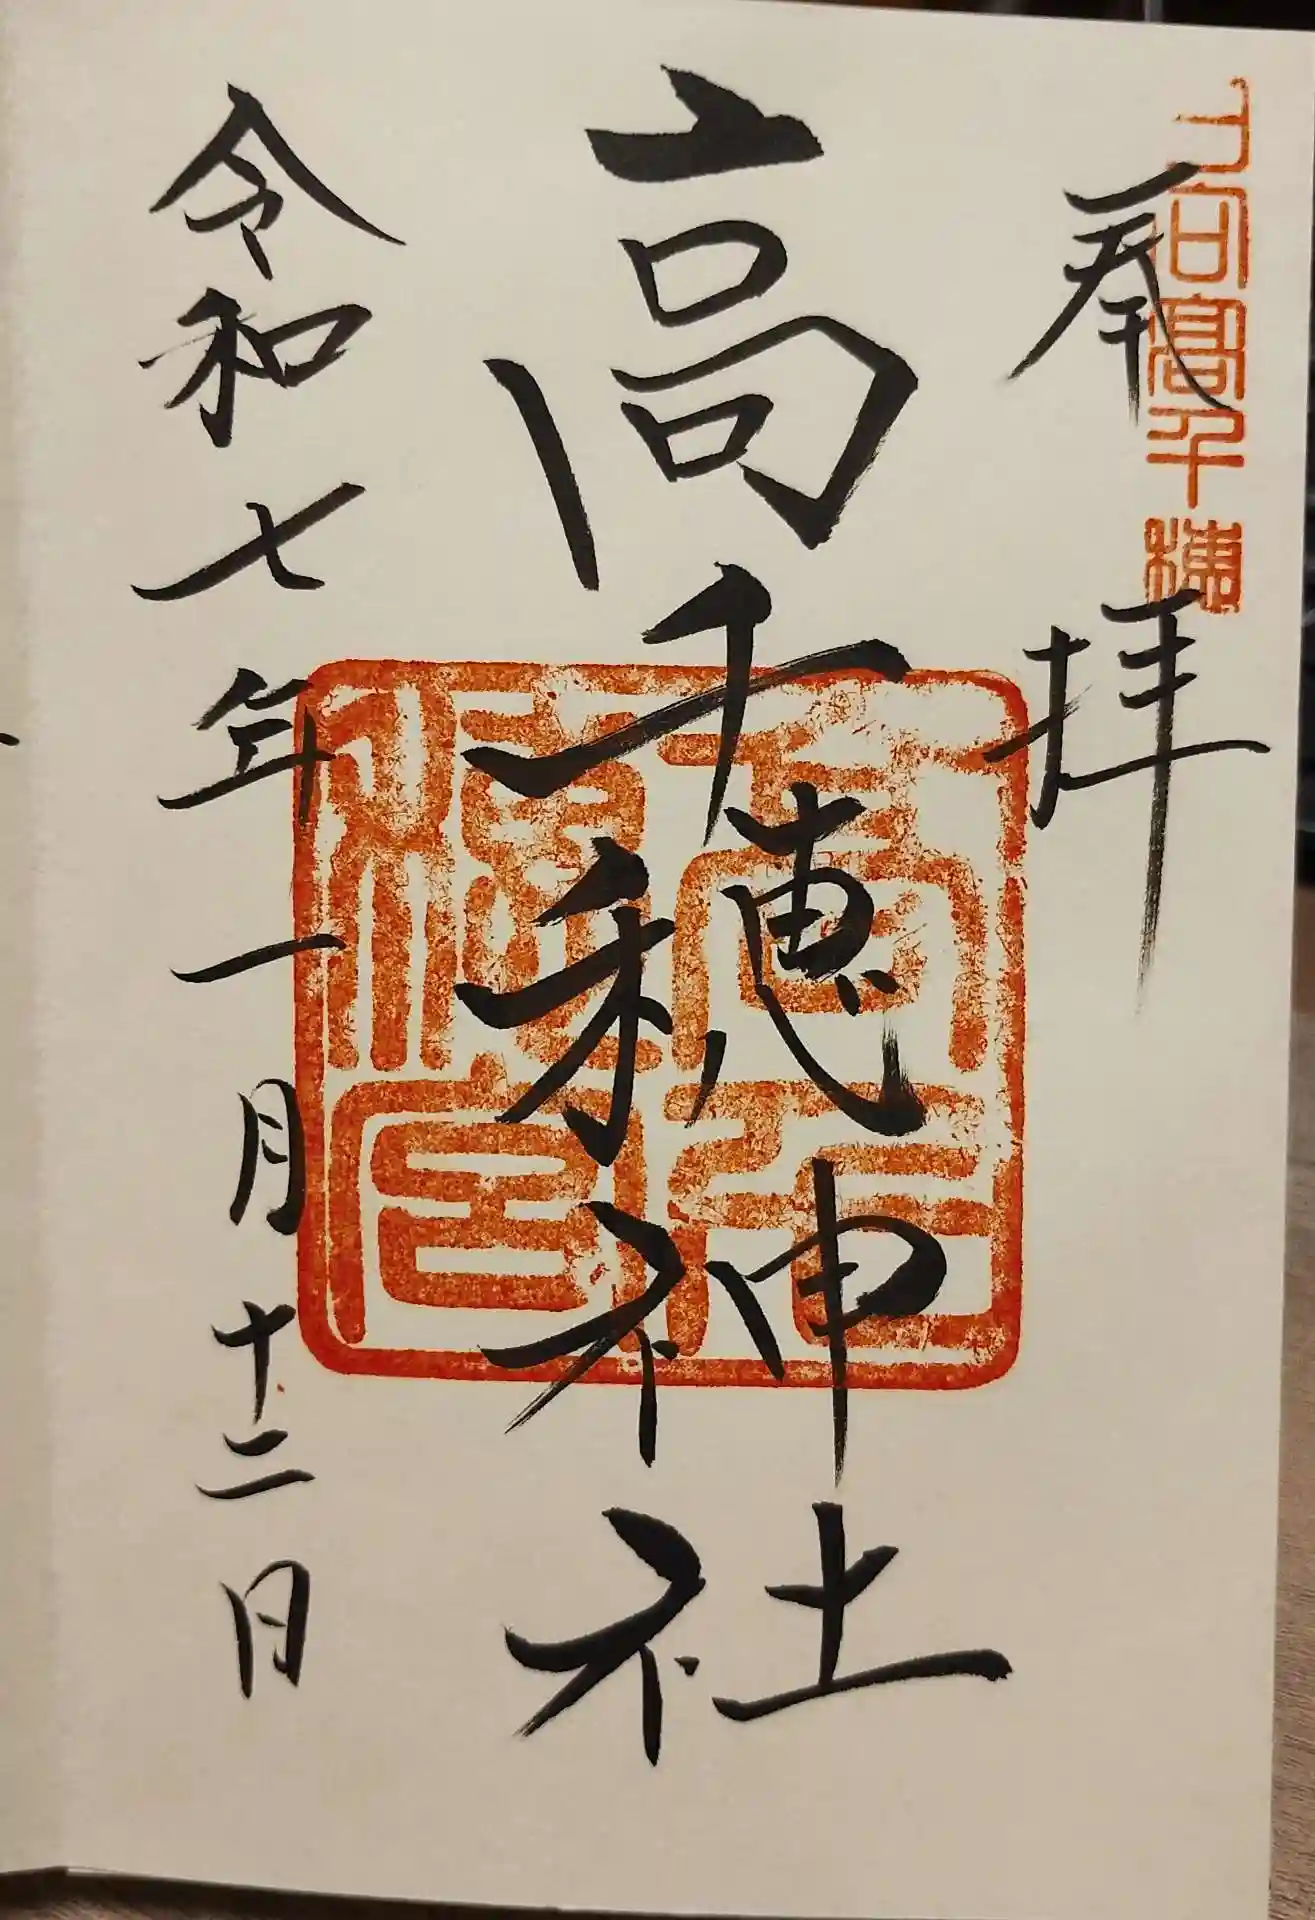 奉拝
下向高千穂
高千穂神社
高千穂宮
令和七年一月十二日